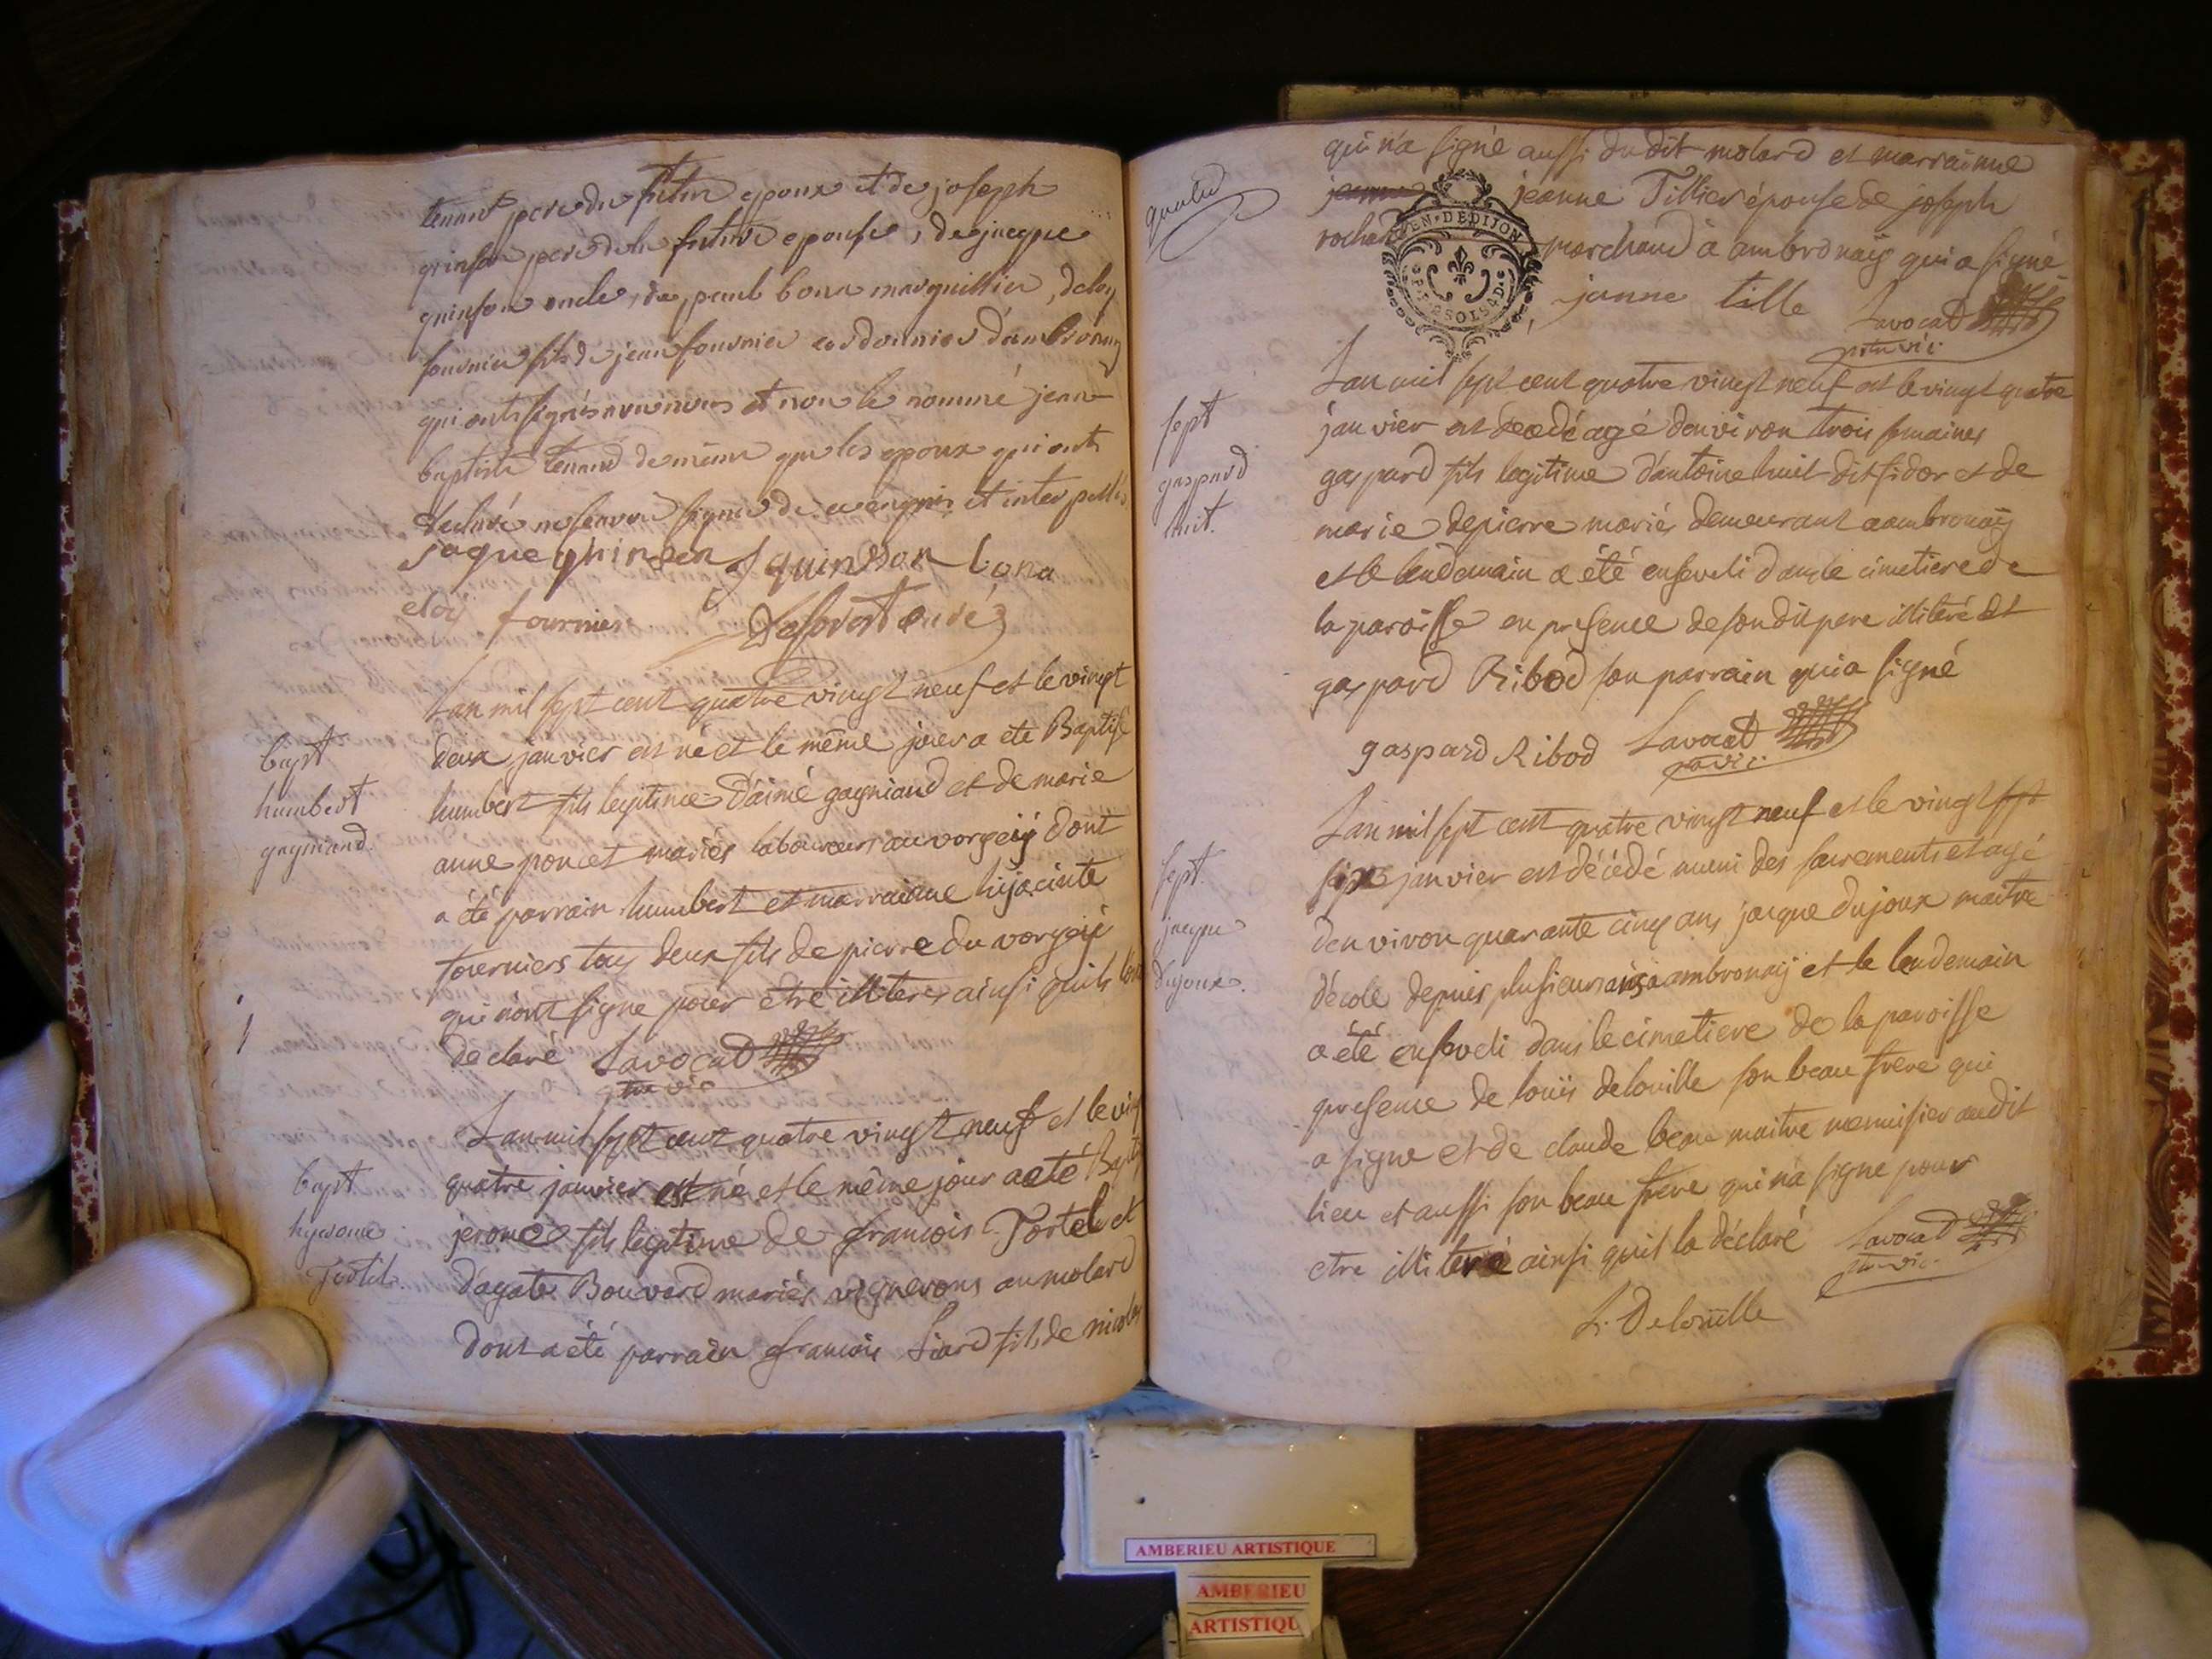 tenant pere du futur epoux et de joseph
quinson pere de la future epouse, de jacque
quinson oncle, de paul bona marguillier, deloy
fournier fils de jean fournier cordonnier d'ambronay
qui onts signés avec nous et non le nommé jean
baptiste tenand de même que les epoux qui onts
declaré ne scavoir signer de ce enquis et interpellés
jaque quinson J quinson bona
eloy fournier curé
L'an mil sept cent quatre vingt neuf et le vingt
deux janvier est né et le même jour a ete Baptisé
bapt
humbert
gagniand
humbert fils legitime d'aimé gagniand et de marie
anne poncet mariés laboureurs au vorgeÿ dont
a été parrain humbert et marraine hijacinte
fourniers tous deux fils de pierre du vorgeÿ
qui n'ont signe pour etre illiteres ainsi quils lont
declaré Lavocat
ptre vic
L'an mil sept cent quatre vingt neuf et le vingt
quatre janvier est né et le même jour a eté Bapt
bapt
hyerome
Tortel
jerome fils legitime de francois Tortel et
d'agate Bouvard mariés vignerons au molard
dont a été parrain francois Liard fils de nicolas
qui n'a signé aussi du dit molard et marrainne
jeanne Tillier épouse de joseph
marchand à ambronaÿ qui a signé
GEN. DE DIJON
janne tille Lavocat
ptre vic.
L'an mil sept cent quatre vingt neuf et le vingt quatre
sept
gaspard
huit.
janvier est decedé agé denviron trois semaines
gaspard fils legitime d'antoine huit dit fidor et de
marie depierre mariés demeurant a ambronaÿ
et le lendemain a été enseveli dans le cimetiere de
la paroisse en presence de son dit pere illiteré et
gaspard Ribod son parrain qui a signé
gaspard Ribod Lavocat
L'an mil sept cent quatre vingt neuf et le vingt sept
sept.
jacque
dujoux.
janvier est décédé muni des sacrements et agé
denviron quarante cinq ans jacque dujoux maitre
d'école depuis plusieurs ans a ambronaÿ et le lendemain
a été enseveli dans le cimetiere de la paroisse
presence de louis delouille son beau frere qui
a signe et de claude beau maitre menuisier audit
lieu et aussi son beau frere qui n'a signe pour
etre illiteré ainsi quil la déclaré Lavocat
ptre vic.
L. Delouille
AMBERIEU ARTISTIQUE
AMBERIEU
ARTISTIQU